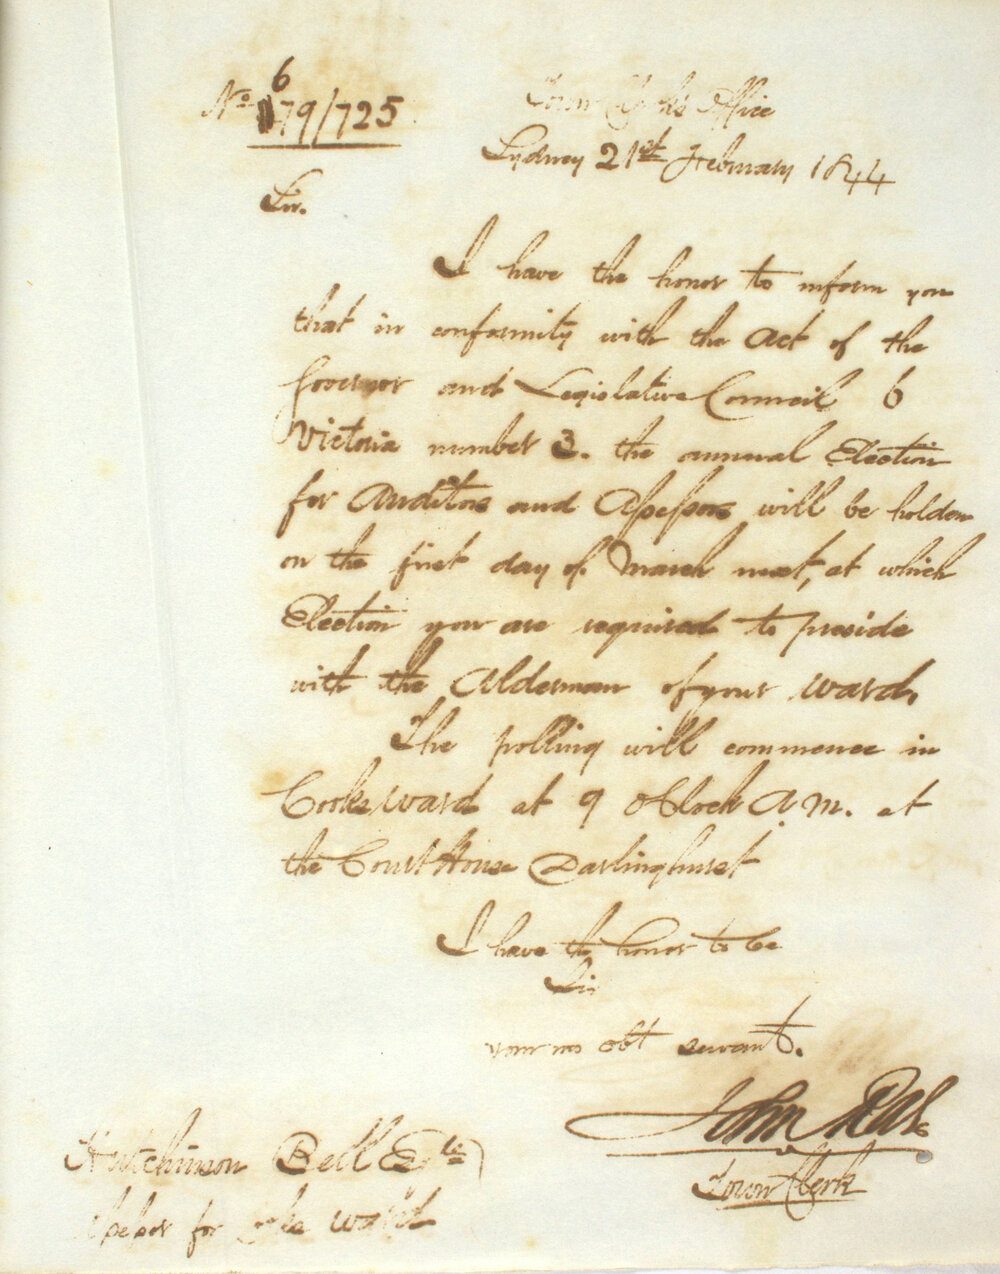 No. 6
179/725
Town Clerk's Office
Sydney 21st February 1844
Sir.
I have the honor to inform you
that in conformity with the Act of the
Governor and Legislative Council 6
Victoria number 3. the annual Election
for Auditors and Assessors will be holden
on the first day of March next, at which
Election you are required to preside
with the Alderman of your ward.
The polling will commence in
Cooks Ward at 9 o'Clock A.M. at
the Court House Darlinghurst
I have the honor to be
Sir
your mo obt servant.
John
Town Clerk
Hutchinson Bell Esqre
Assessor for Cooke Ward